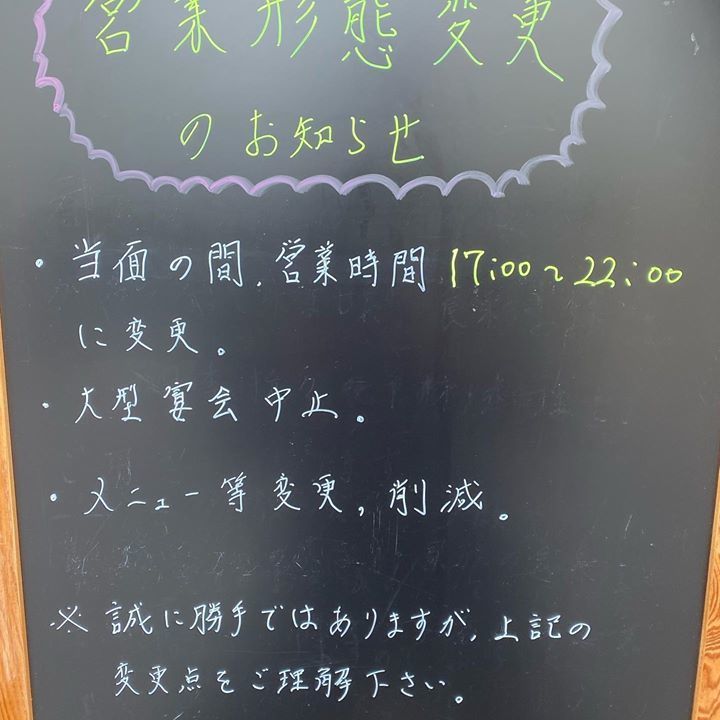 営業形態変更
のお知らせ
・当面の間、営業時間 17:00~22:00
に変更。
・大型宴会中止。
・メニュー等変更,削減。
※誠に勝手ではありますが、上記の
変更点をご理解下さい。